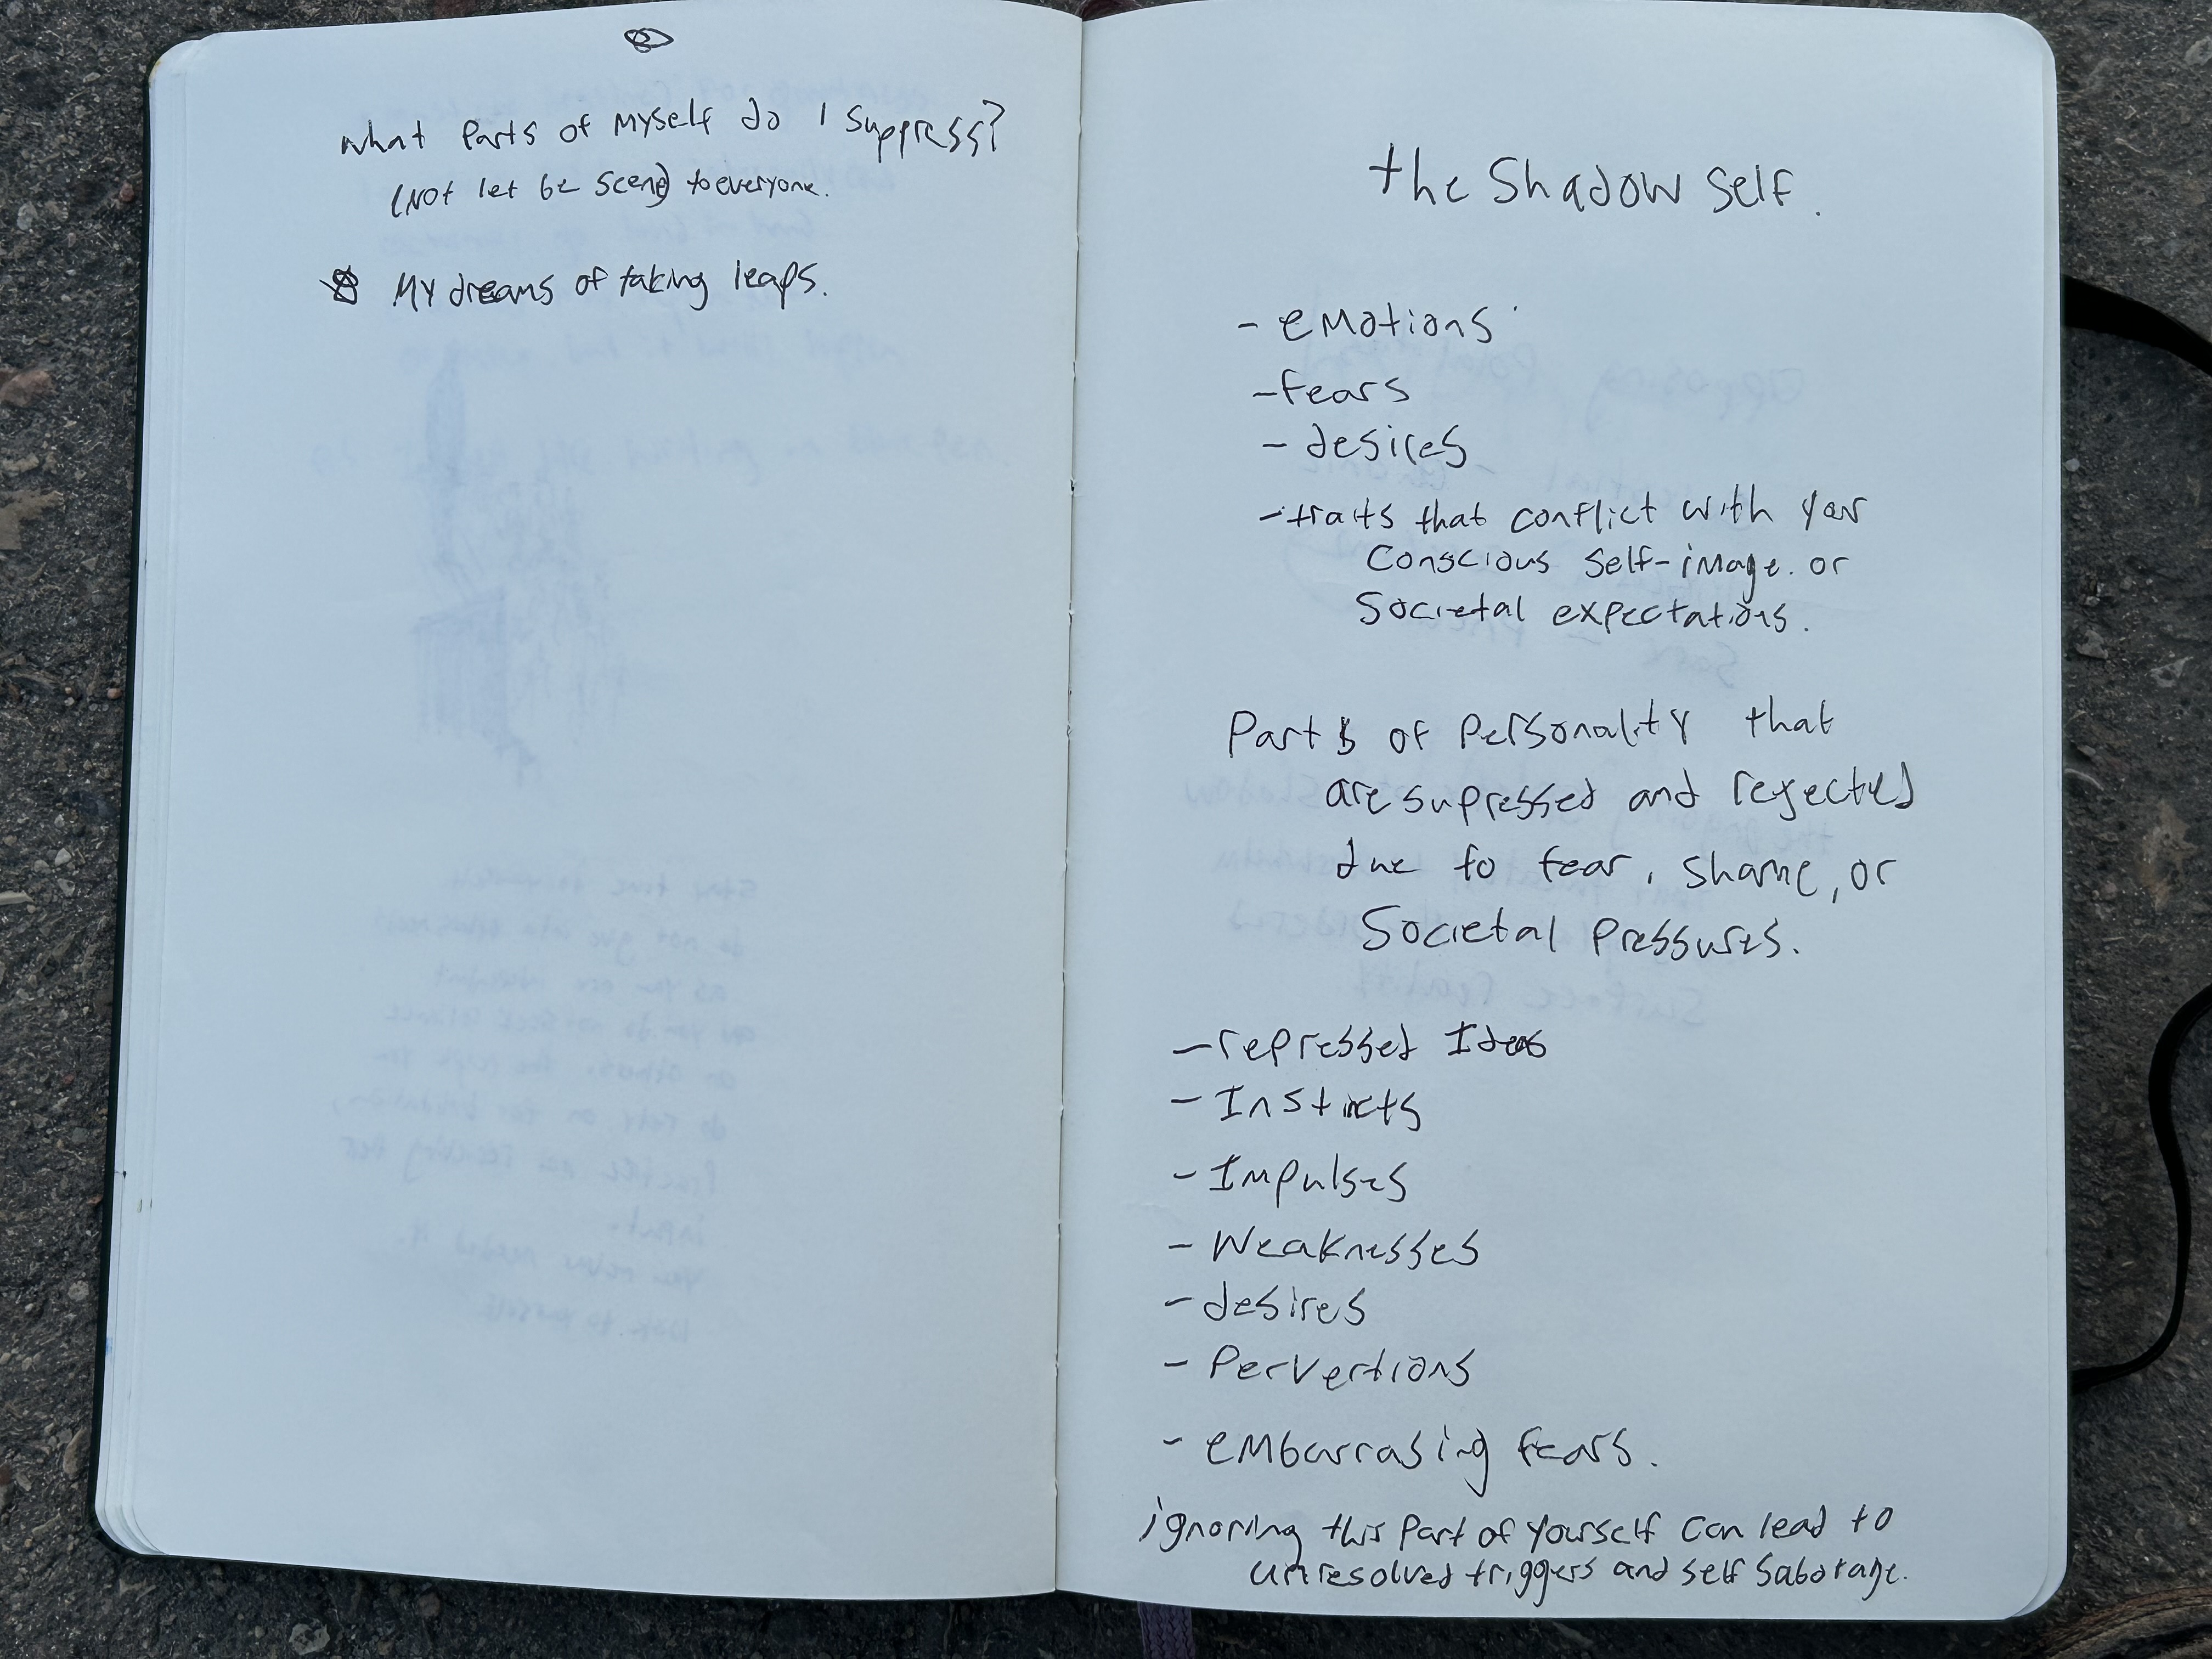 what Parts of Myself do I Suppress?
(Not let be Scene) to everyone.
My dreams of taking leaps.
the Shadow Self.
- eMotions
- fears
- desires
- traits that conflict with your
Conscious Self-image. or
Societal expectations.
Parts of Personality that
are supressed and rejected
due to fear, shame, or
Societal Pressures.
- repressed Ideas
- Instincts
- Impulses
- Weaknesses
- desires
- Pervertions
- eMbarrasing fears.
ignoring this Part of Yourself can lead to
unresolved triggers and self sabotage.